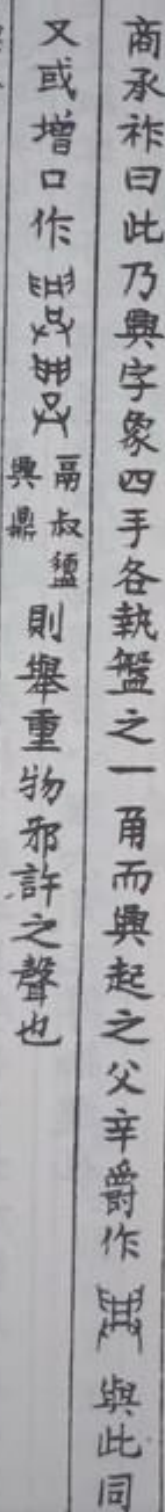 商承祚曰此乃興字象四手各執盤之一角而興起之父辛爵作與此同
又或增口作鬲叔盨興鼎則舉重物邪許之聲也